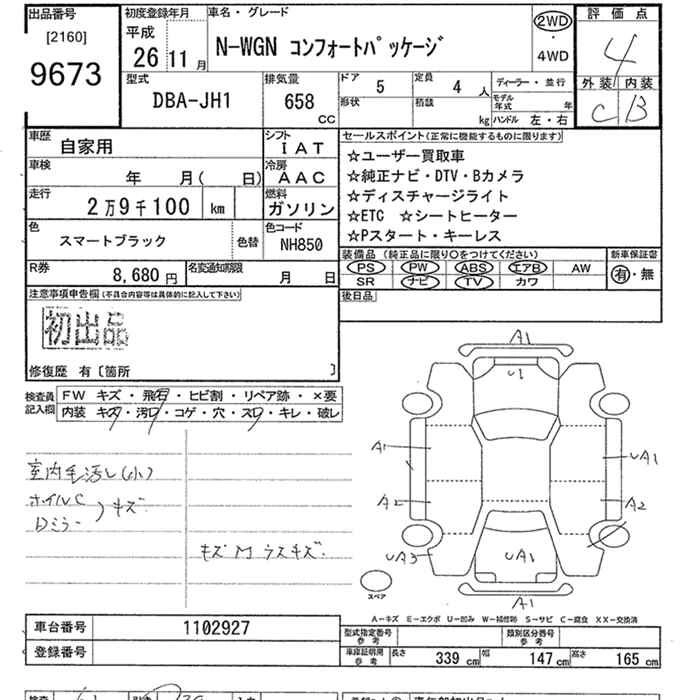 出品番号
[2160]
9673
初度登録年月
平成
26 11 月
車名・グレード
N-WGN コンフォートパッケージ
2WD
・
4WD
評価点
4
外装 内装
C B
型式
DBA-JH1
排気量
658
CC
ドア
5
形状
定員
4 人
積載
kg
ディーラー・並行
モデル年式 年
ハンドル 左・右
車歴
自家用
シフト
IAT
車検
年 月( 日)
冷房
AAC
走行
2万9千100 km
燃料
ガソリン
色
スマートブラック
色替
色コード
NH850
R券
8,680 円
名変通知期限
月 日
セールスポイント(正常に機能するものに限ります)
☆ユーザー買取車
☆純正ナビ・DTV・Bカメラ
☆ディスチャージライト
☆ETC ☆シートヒーター
☆Pスタート・キーレス
装備品(純正品に限り〇をつけてください)
PS PW ABS エアB AW
SR ナビ TV カワ
新車保証書
有・無
後日品
注意事項申告欄(不具合内容等は具体的に記入して下さい)
初出品
修復歴 有〔箇所 〕
検査員記入欄
FW キズ・飛石・ヒビ割・リペア跡・×要
内装 キズ・汚レ・コゲ・穴・スレ・キレ・破レ
室内毛汚し(小)
ホイルC
Dミラー
)キズ
キズM ラスキズ.
A1
U1
A1
UA1
A2
A2
UA3
UA1
A1
スペア
A－キズ E－エクボ U－凹み W－補修跡 S－サビ C－腐食 XX－交換済
車台番号
1102927
登録番号
型式指定番号参考
類別区分番号参考
車庫証明用参考
長さ 339 cm 幅 147 cm 高さ 165 cm